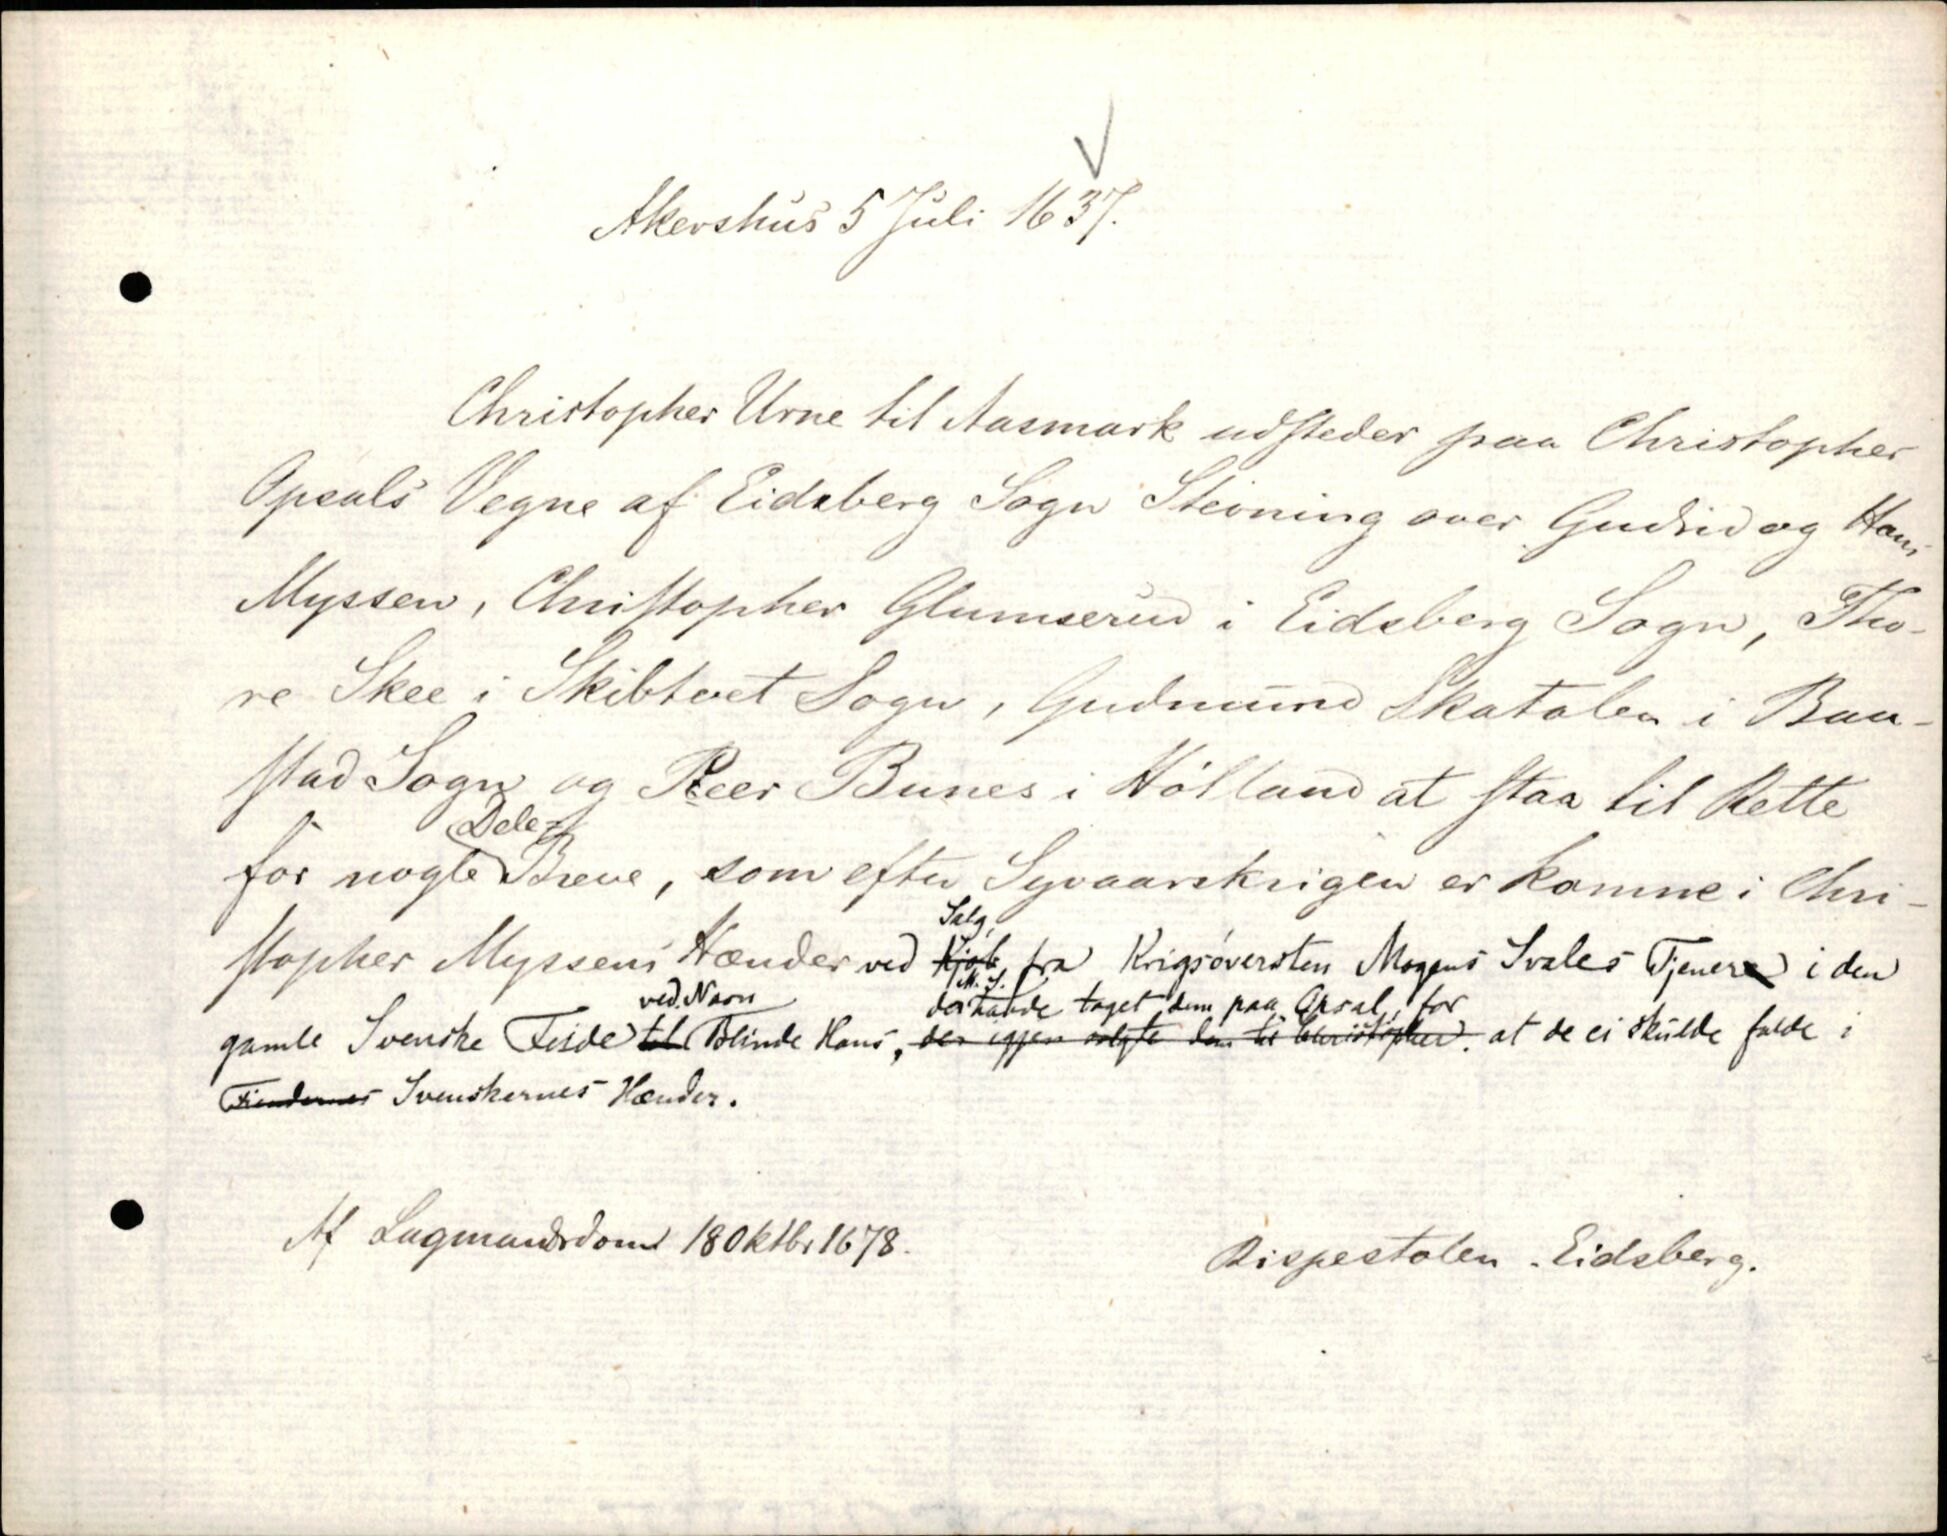 Akershus 5 Juli 1637.
Christopher Urne til Aasmark udsteder paa Christopher
Opsals Vegne af Eidsberg Sogn Stevning over Gudrid og Hans
Myssen, Christopher Glumserud i Eidsberg Sogn, Tho-
re Skee i Skibtvet Sogn, Gudmund Skatolen i Baa-
stad Sogn og Peer Bunes i Hölland at staa til Rette
Dele-
for nogle Breve, som efter Syvaarskrigen er komne i Chri-
Salg,
stopher Myssens Hænder ved Kjøb fra Krigsöversten Mogens Svales Tjenere i den
ved Navn
M. S.
der havde taget dem paa Opsal, for
gamle Svenske Feide til Blinde Hans, der igjen solgte dem til Christopher. at de ei skulde falde i
Fiendernes Svenskernes Hænder.
Af Lagmandsdom 18 Oktbr 1678.
Rispestolen - Eidsberg.